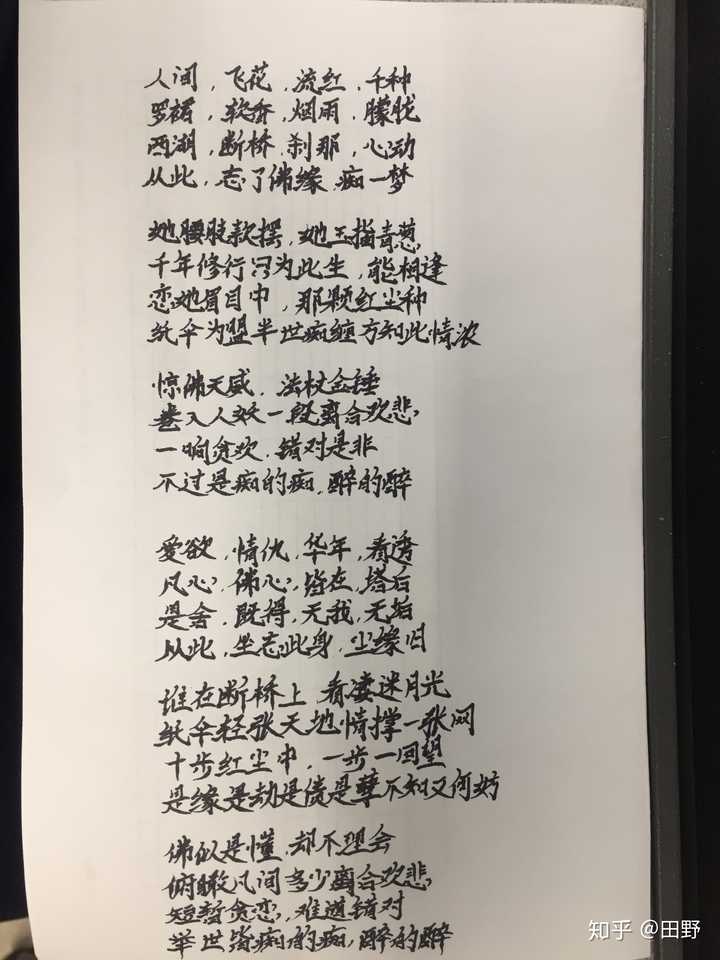 人间，飞花，流红，千种
罗裙，软香，烟雨，朦胧
西湖，断桥，刹那，心动
从此，忘了佛缘，痴一梦
她腰肢款摆，她玉指青葱
千年修行只为此生，能相逢
恋她眉目中，那颗红尘种
纸伞为盟半世痴缠方知此情浓
惊佛天威，法杖金锤
卷入人妖一段离合欢悲
一晌贪欢，错对是非
不过是痴的痴，醉的醉
爱欲，情仇，华年，看透
凡心，佛心，皆在，塔后
是舍，既得，无我，无垢
从此，坐忘此身，尘缘旧
谁在断桥上，看凄迷月光
纸伞轻张天地情撑一张网
十步红尘中，一步一回望
是缘是劫是债是孽不知又何妨
佛似是懂，却不理会
俯瞰凡间多少离合欢悲
短暂贪恋，难道错对
举世皆痴的痴，醉的醉
知乎 @田野